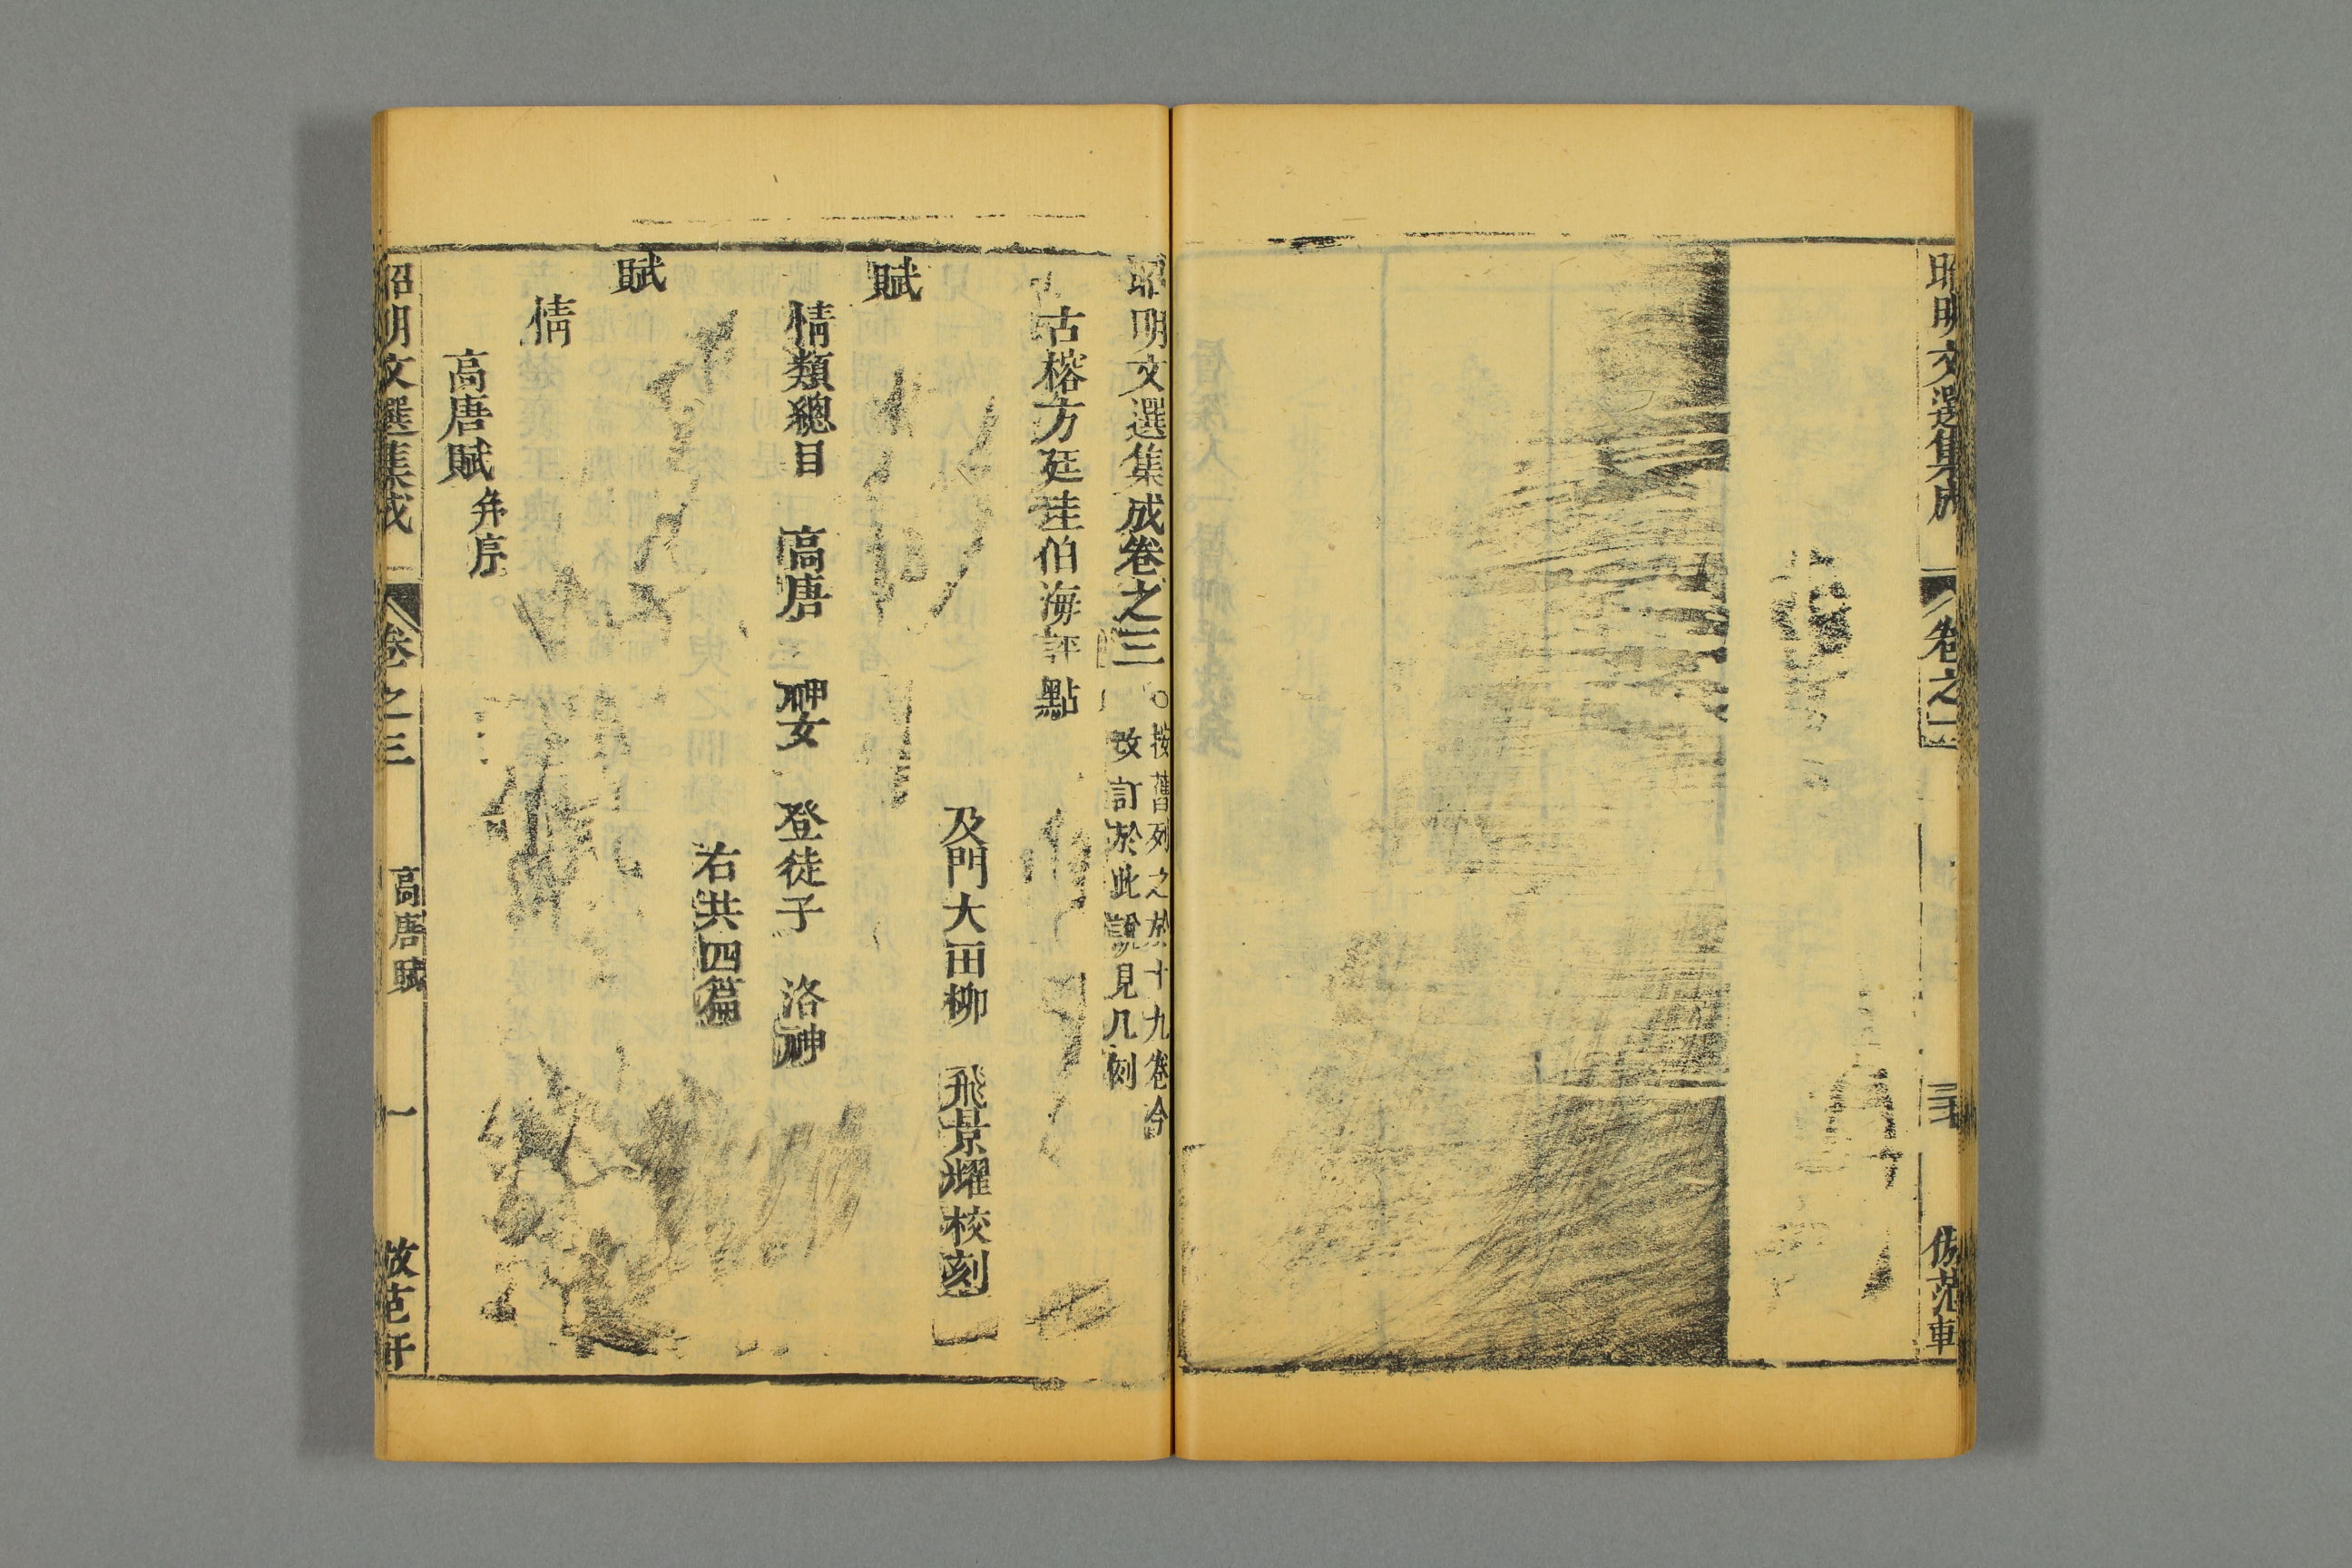 昭明文選集成
卷之二
倣范軒
昭明文選集成卷之三
○按舊列之於十九卷今
改訂於此說見凡例
古榕方廷珪伯海評點
及門大田柳 飛景耀校刻
賦
情類總目 高唐 神女 登徒子 洛神
右共四篇
賦
情
高唐賦
并序
昭明文選集成
卷之三
高唐賦
一
倣范軒